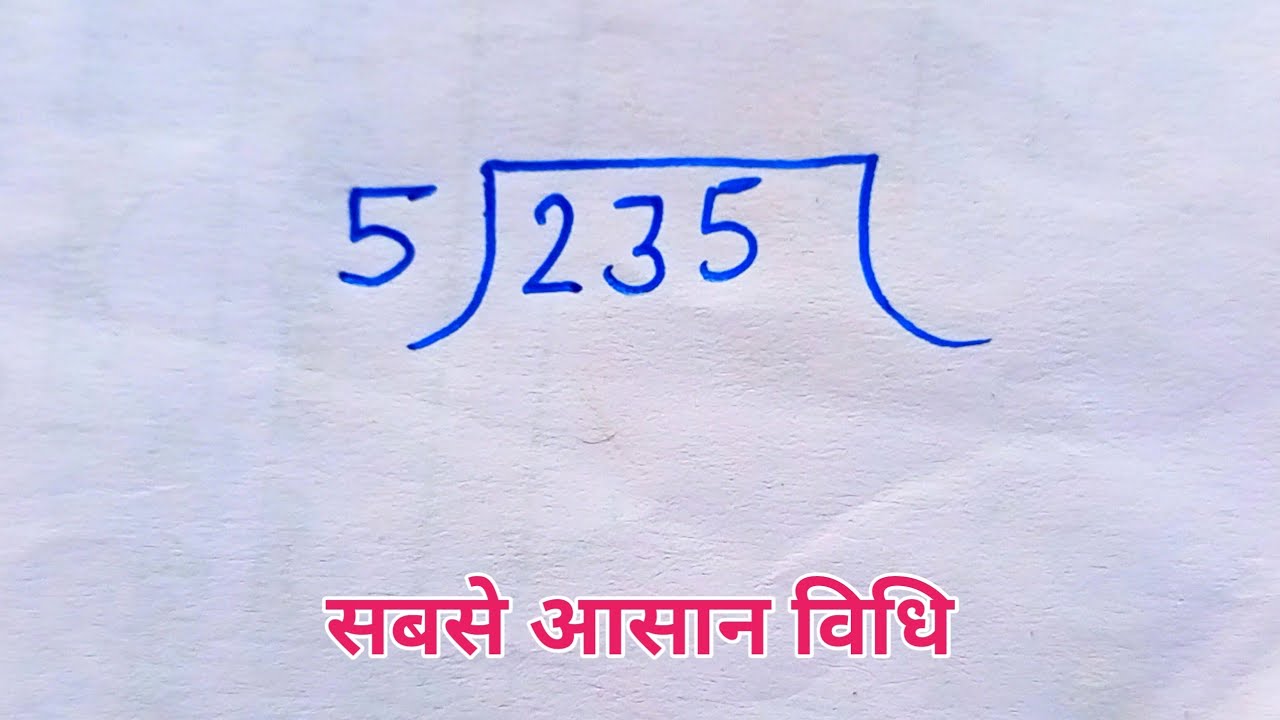 5 235
सबसे आसान विधि